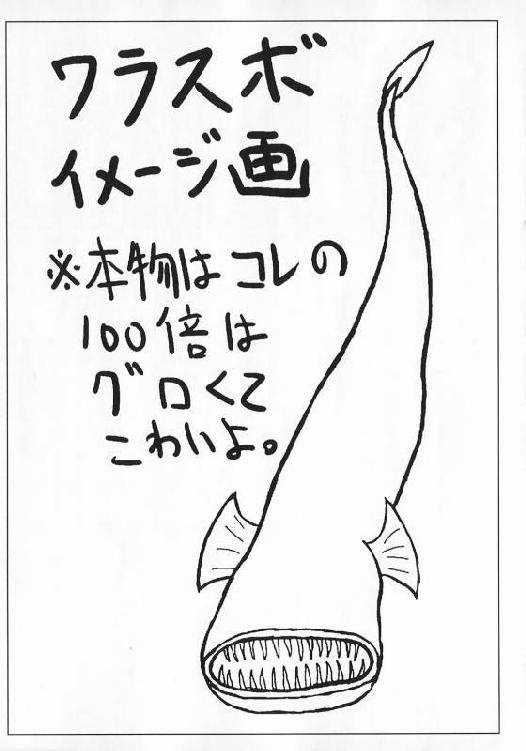 ワラスボ
イメージ画
※本物はコレの
100倍は
グロくて
こわいよ。